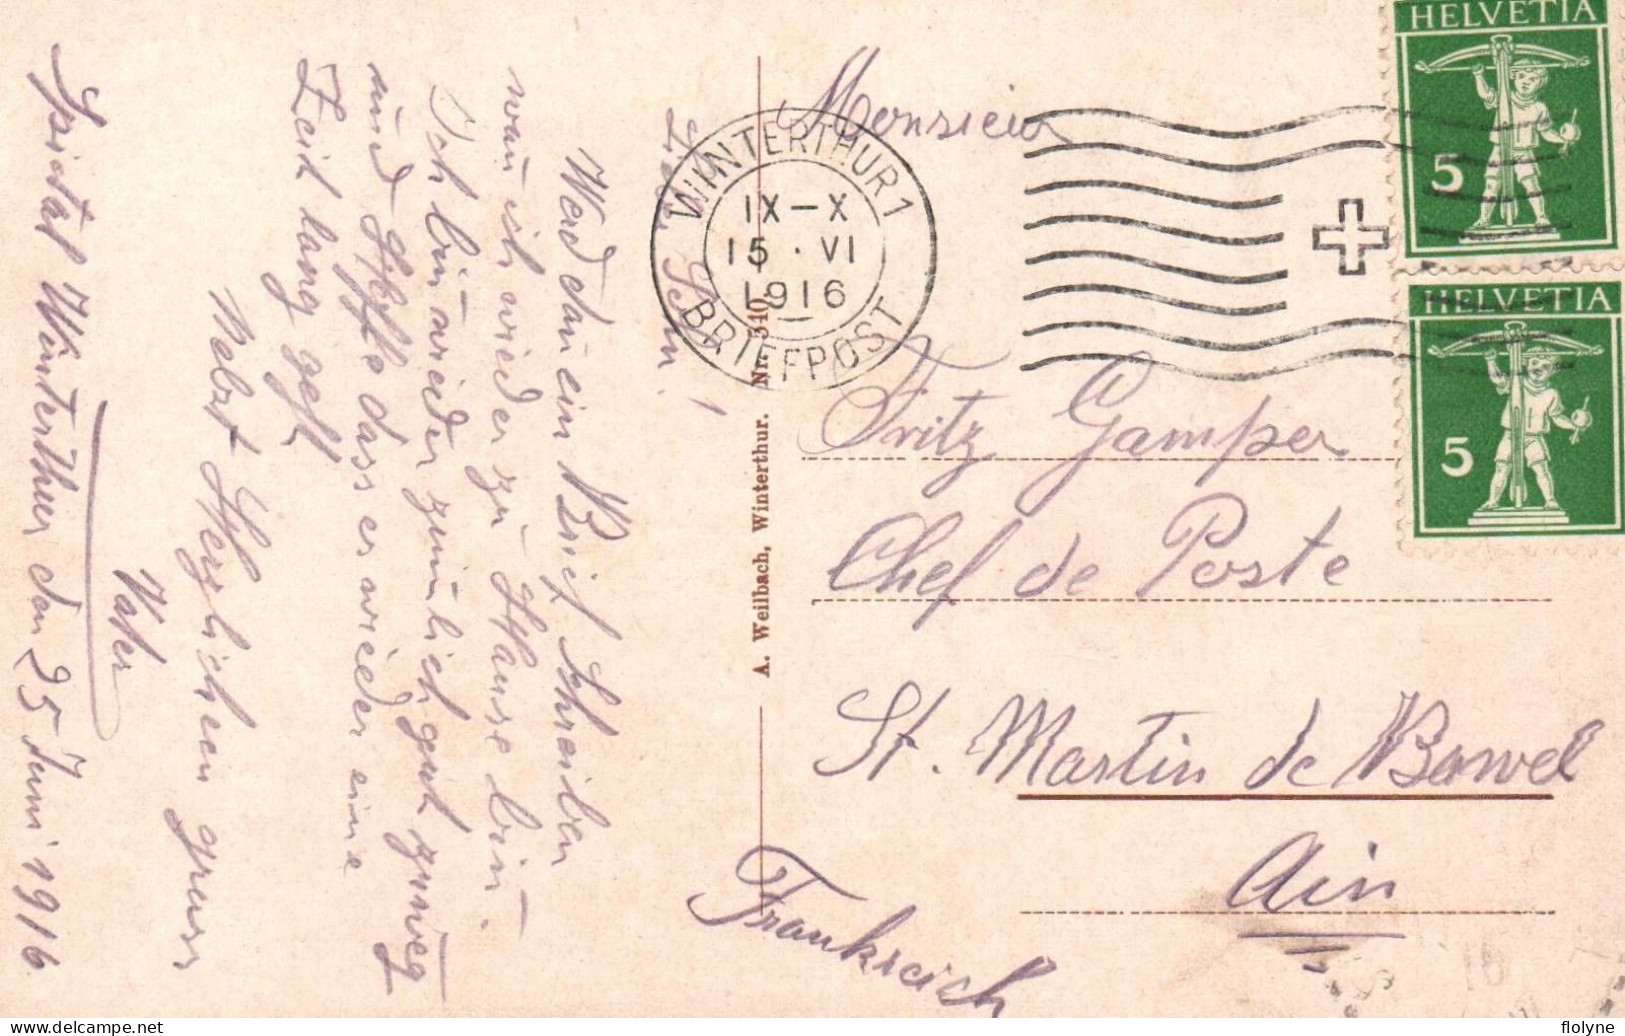 Lieber Sohn!
Werd dan ein Brief schreiben
wan ich wieder zu Hause bin.
Ich bin wieder zimlich gut zunweg
und Hoffe dass es wieder eine
Zeit lang geht
Nebst Herzlichen gruss
Vater
Spictal Winterthur den 15 Juni 1916
A. Weilbach, Winterthur. Nr. 310.
WINTERTHUR 1
IX–X
15 · VI
1916
BRIEFPOST
HELVETIA
5
HELVETIA
5
Monsieur
Fritz Gamper
Chef de Poste
St. Martin de Bawel
Ain
Frankreich
www.delcampe.net
flolyne